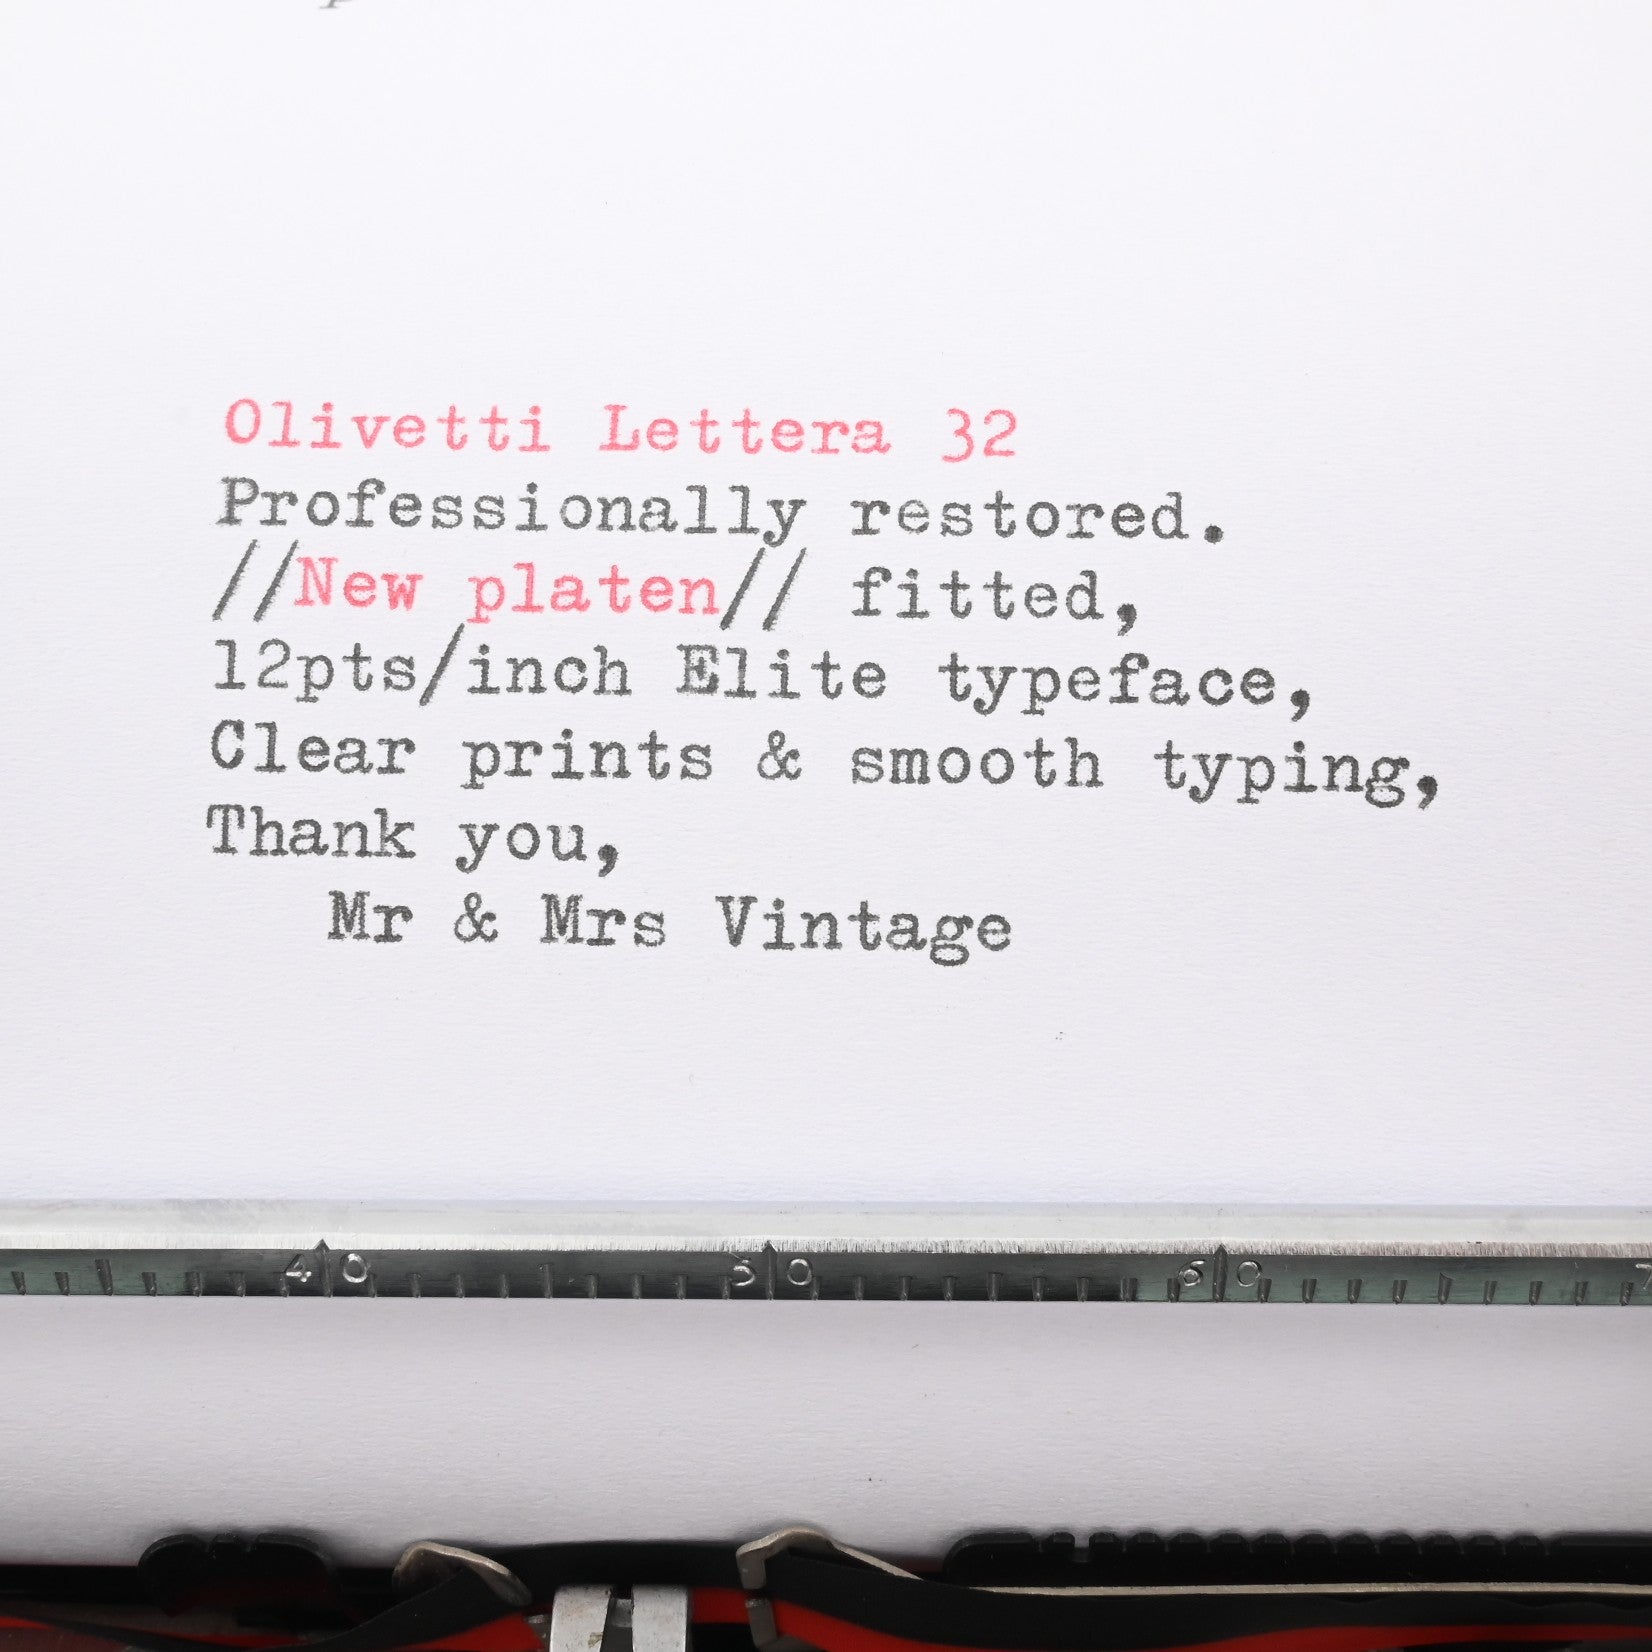 Olivetti Lettera 32
Professionally restored.
//New platen// fitted,
12pts/inch Elite typeface,
Clear prints & smooth typing,
Thank you,
Mr & Mrs Vintage
40 50 60 7